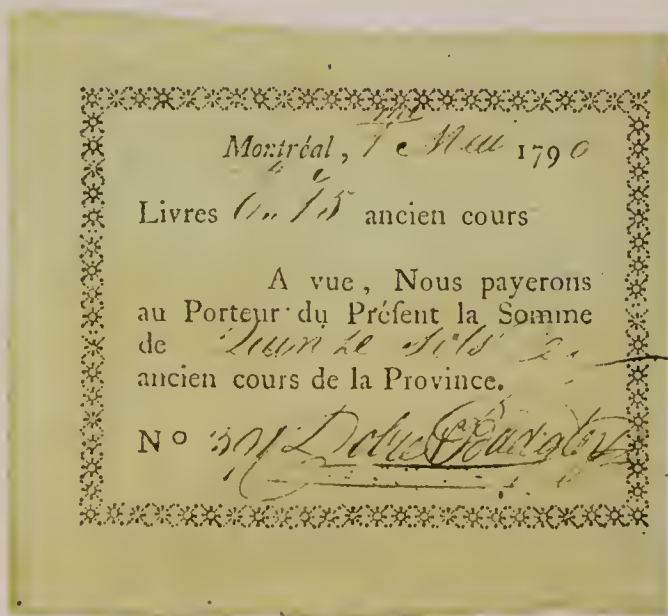 Montréal, 1e Mai 1790
Livres 0,, 15 ancien cours
A vue, Nous payerons
au Porteur du Préſent la Somme
de Quinze Sols
ancien cours de la Province.
No